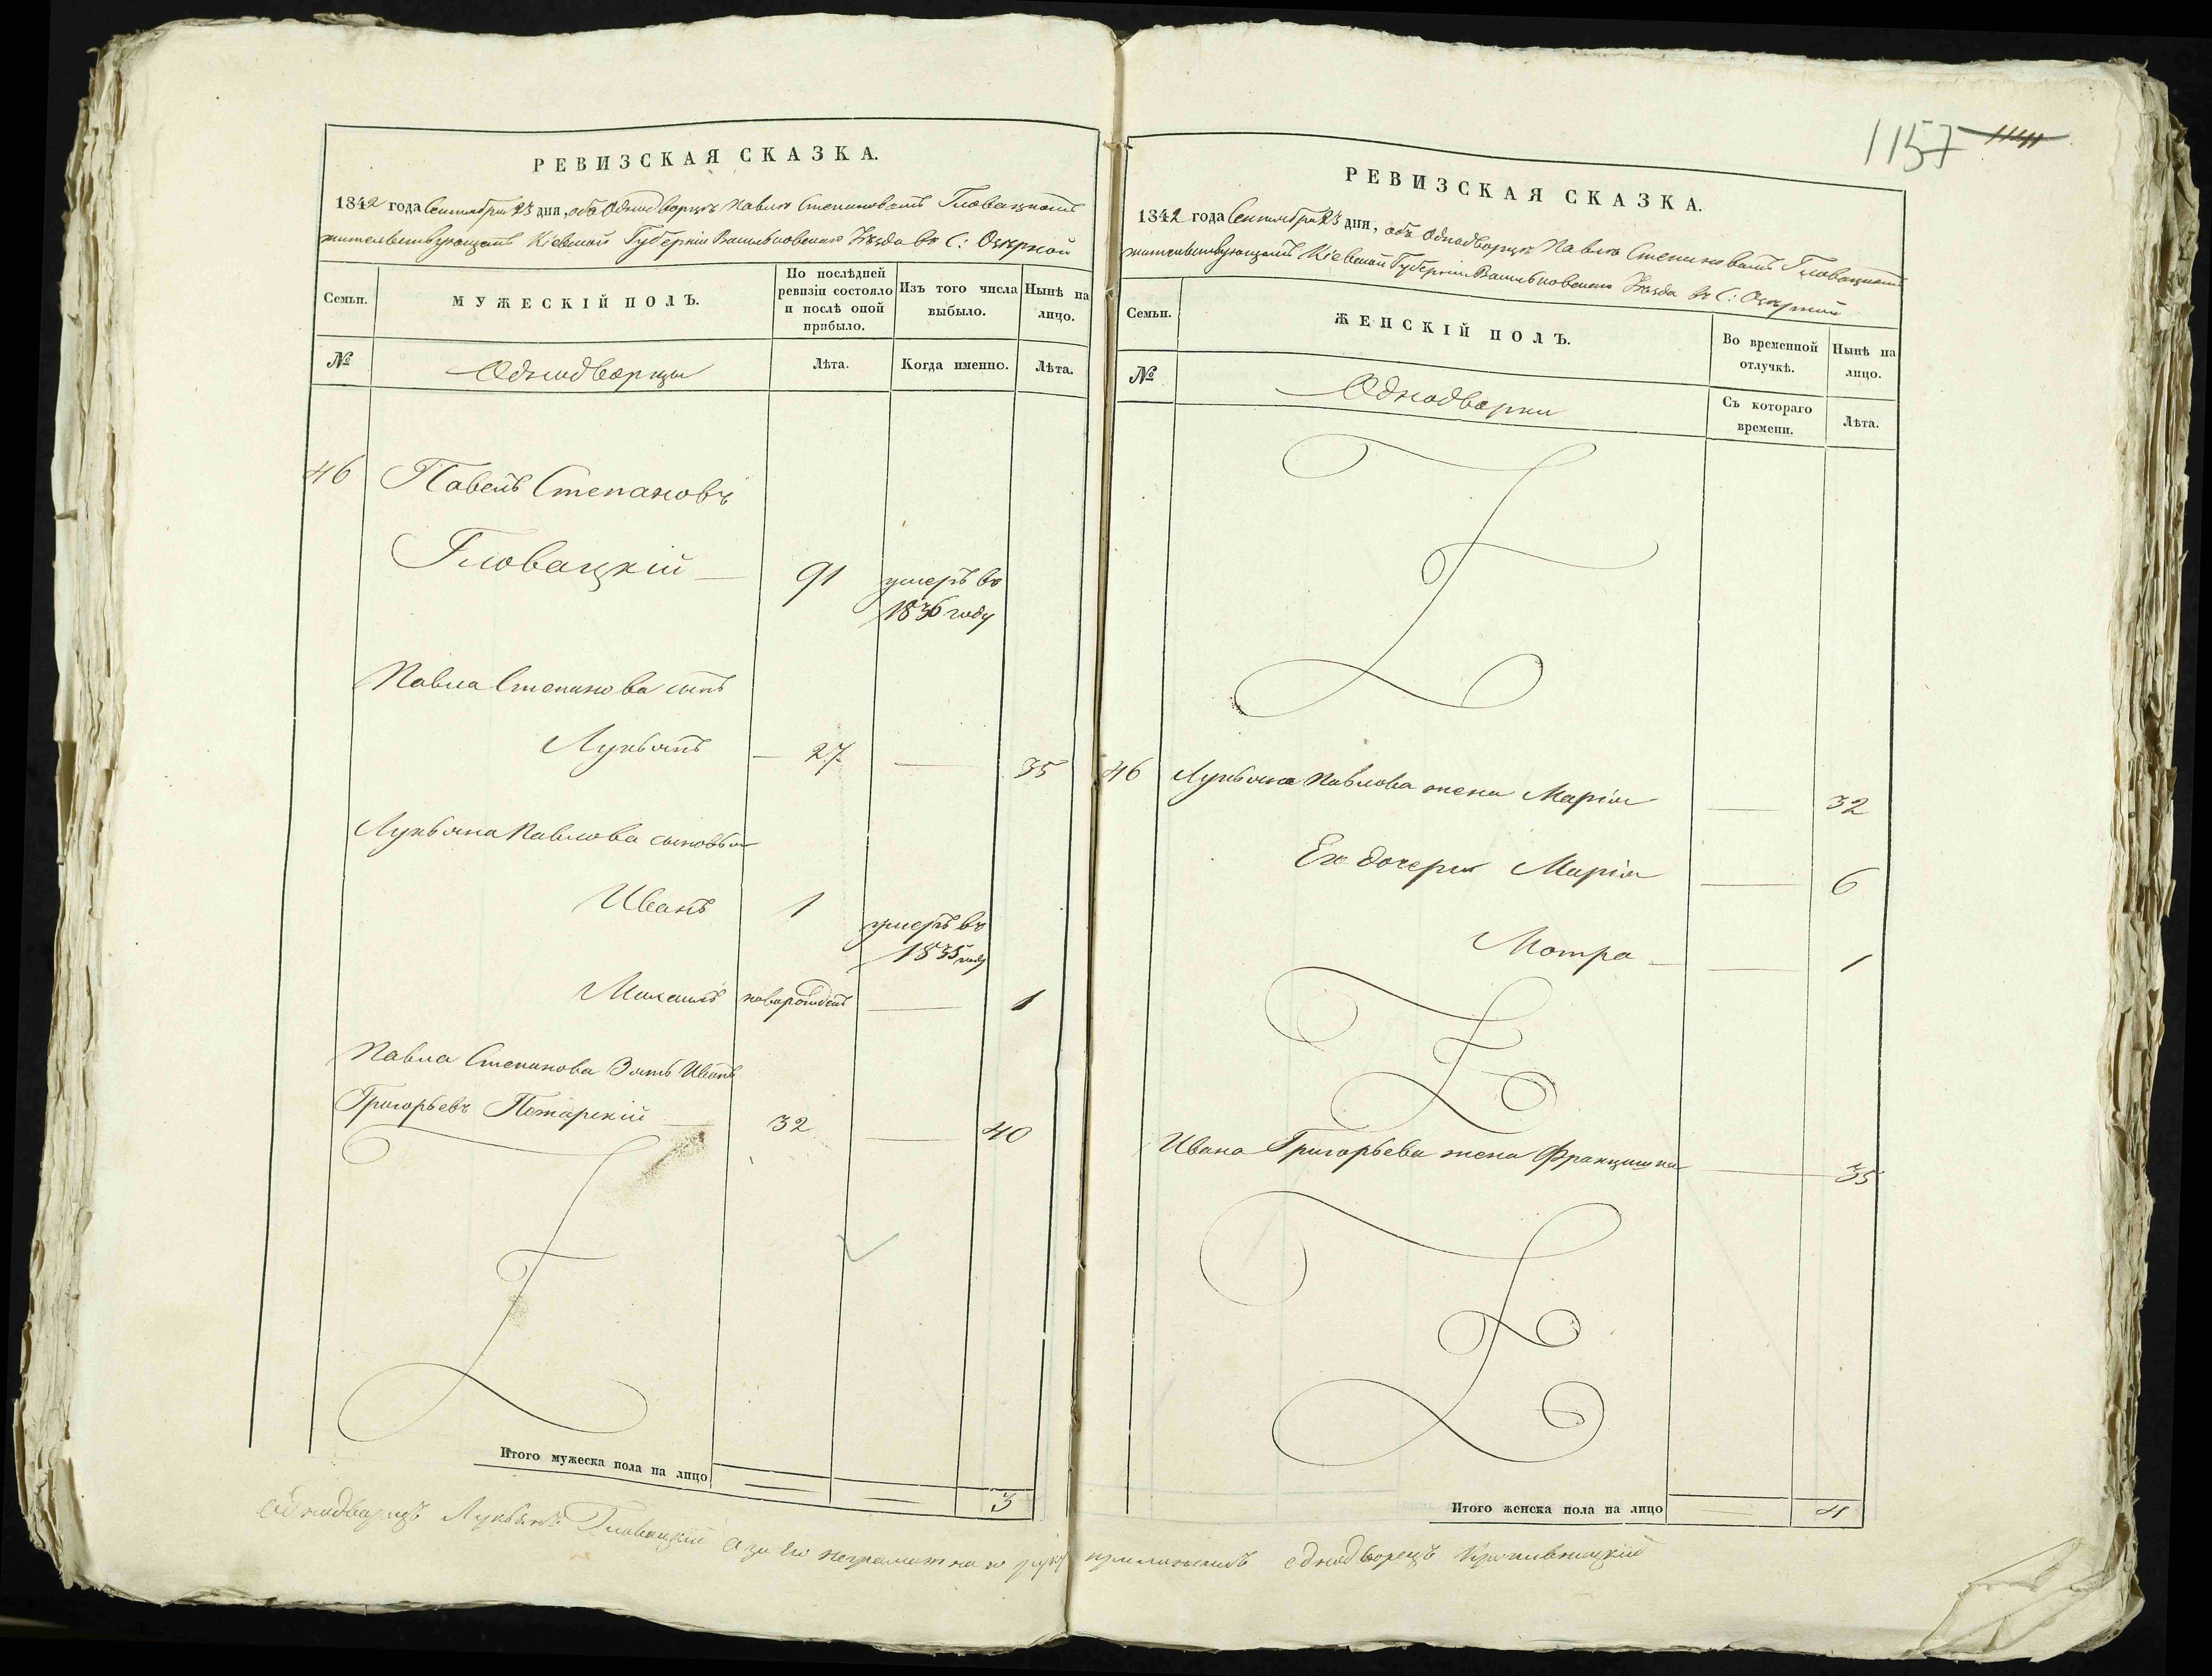 РЕВИЗСКАЯ СКАЗКА.
1842 года Сентября 23 дня, объ Однодворцѣ Павлѣ Степановомъ Гловацкомъ
жительствующемъ Кіевской Губерніи Васильковскаго Уѣзда въ С: Озѣрной
Семьи.
МУЖЕСКІЙ ПОЛЪ.
По послѣдней
ревизіи состояло
и послѣ оной
прибыло.
Изъ того числа
выбыло.
Нынѣ на
лицо.
№
Однодворцы
Лѣта.
Когда именно.
Лѣта.
46 Павелъ Степановъ
Гловацкій — 91 умеръ въ
1836 году
Павла Степанова сынъ
Лукьянъ — 27 — 35
Лукьяна Павлова сыновья
Иванъ 1 умеръ въ
1835 году
Михаилъ новорожденъ — 1
Павла Степанова Зять Иванъ
Григорьевъ Пожарскій — 32 — 40
Итого мужеска пола на лицо — — 3
1157 1141
РЕВИЗСКАЯ СКАЗКА.
1842 года Сентября 23 дня, объ Однодворцѣ Павлѣ Степановомъ Гловацкомъ
жительствующемъ Кіевской Губерніи Васильковскаго Уѣзда въ С: Озѣрной
Семьи.
ЖЕНСКІЙ ПОЛЪ.
Во временной
отлучкѣ.
Нынѣ на
лицо.
№
Однодворки
Съ котораго
времени.
Лѣта.
46 Лукьяна Павлова жена Марія — 32
Его дочери Марія — 6
Мотра — — 1
Ивана Григорьева жена Францишка — 35
Итого женска пола на лицо — 4
однодворецъ Лукьянъ Гловацкій а за его неграмотного руку приложилъ однодворецъ Кропивницкій